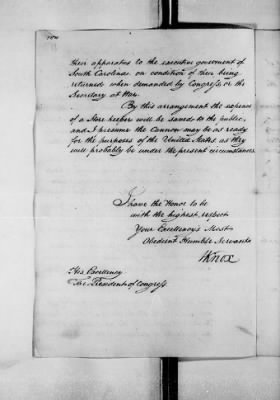 their apparatus to the executive government of
South Carolina on condition of their being
returned when demanded by Congress, or the
Secretary at War.
By this arrangement the expense
of a Store keeper will be saved to the public,
and I presume the Cannon may be as ready
for the purposes of the United States as they
will probably be under the present circumstances
I have the Honor to be
with the highest respect
Your Excellency's Most
Obedient Humble Servant
HKnox
His Excellency
The President of Congress